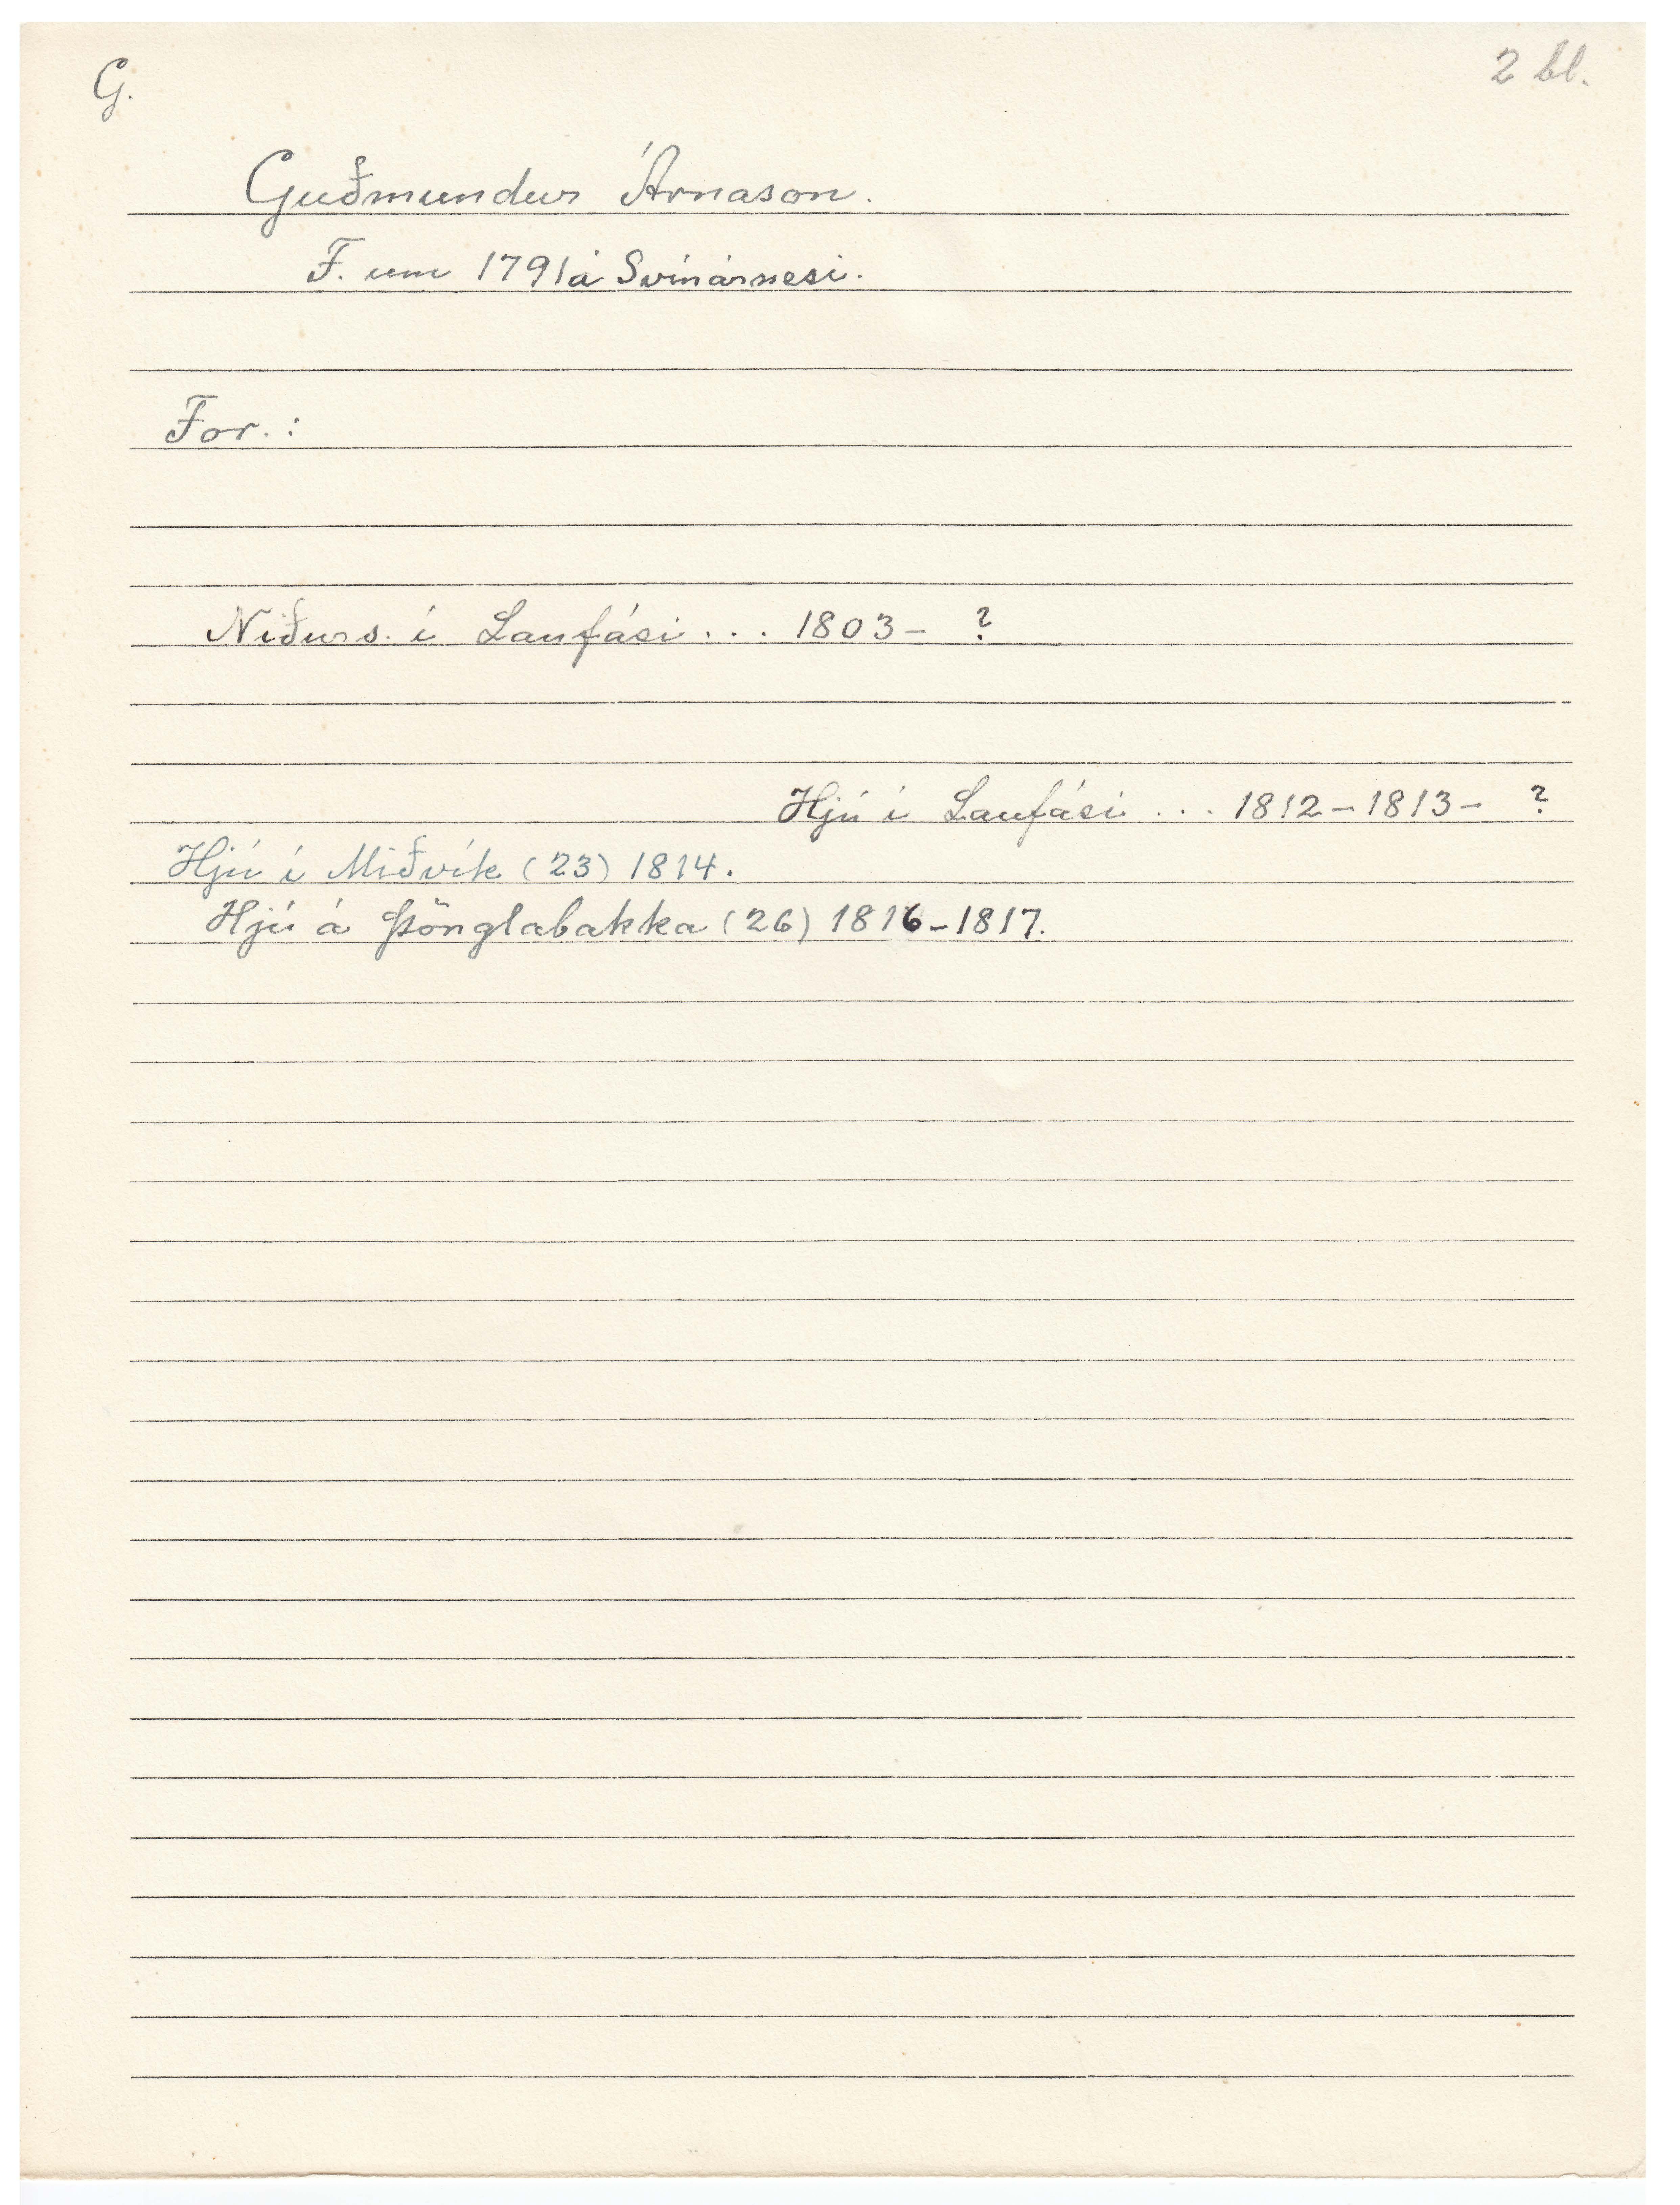 G.
2 bl.
Guðmundur Árnason.
F. um 1791 á Svínárnesi.
For.:
Niðurs. í Laufási . . . 1803 – ?
Hjú í Laufási . . . 1812 – 1813 – ?
Hjú í Miðvík (23) 1814.
Hjú á Þönglabakka (26) 1816 – 1817.